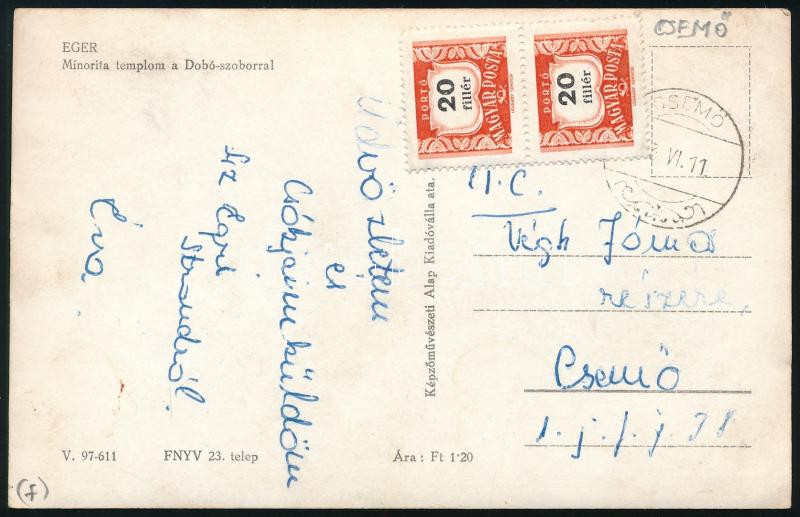 EGER
Minorita templom a Dobó-szoborral
CSEMŐ
PORTÓ
20
fillér
MAGYAR POSTA
PORTÓ
20
fillér
MAGYAR POSTA
CSEMŐ
VI. 11
Üdvözletem
és
Csókjaim küldöm
Az Egri
Strandról.
Éva
Képzőművészeti Alap Kiadóvállalata.
Végh János
részére,
Csemő
V. 97-611
FNYV 23. telep
Ára : Ft 1·20
(f)